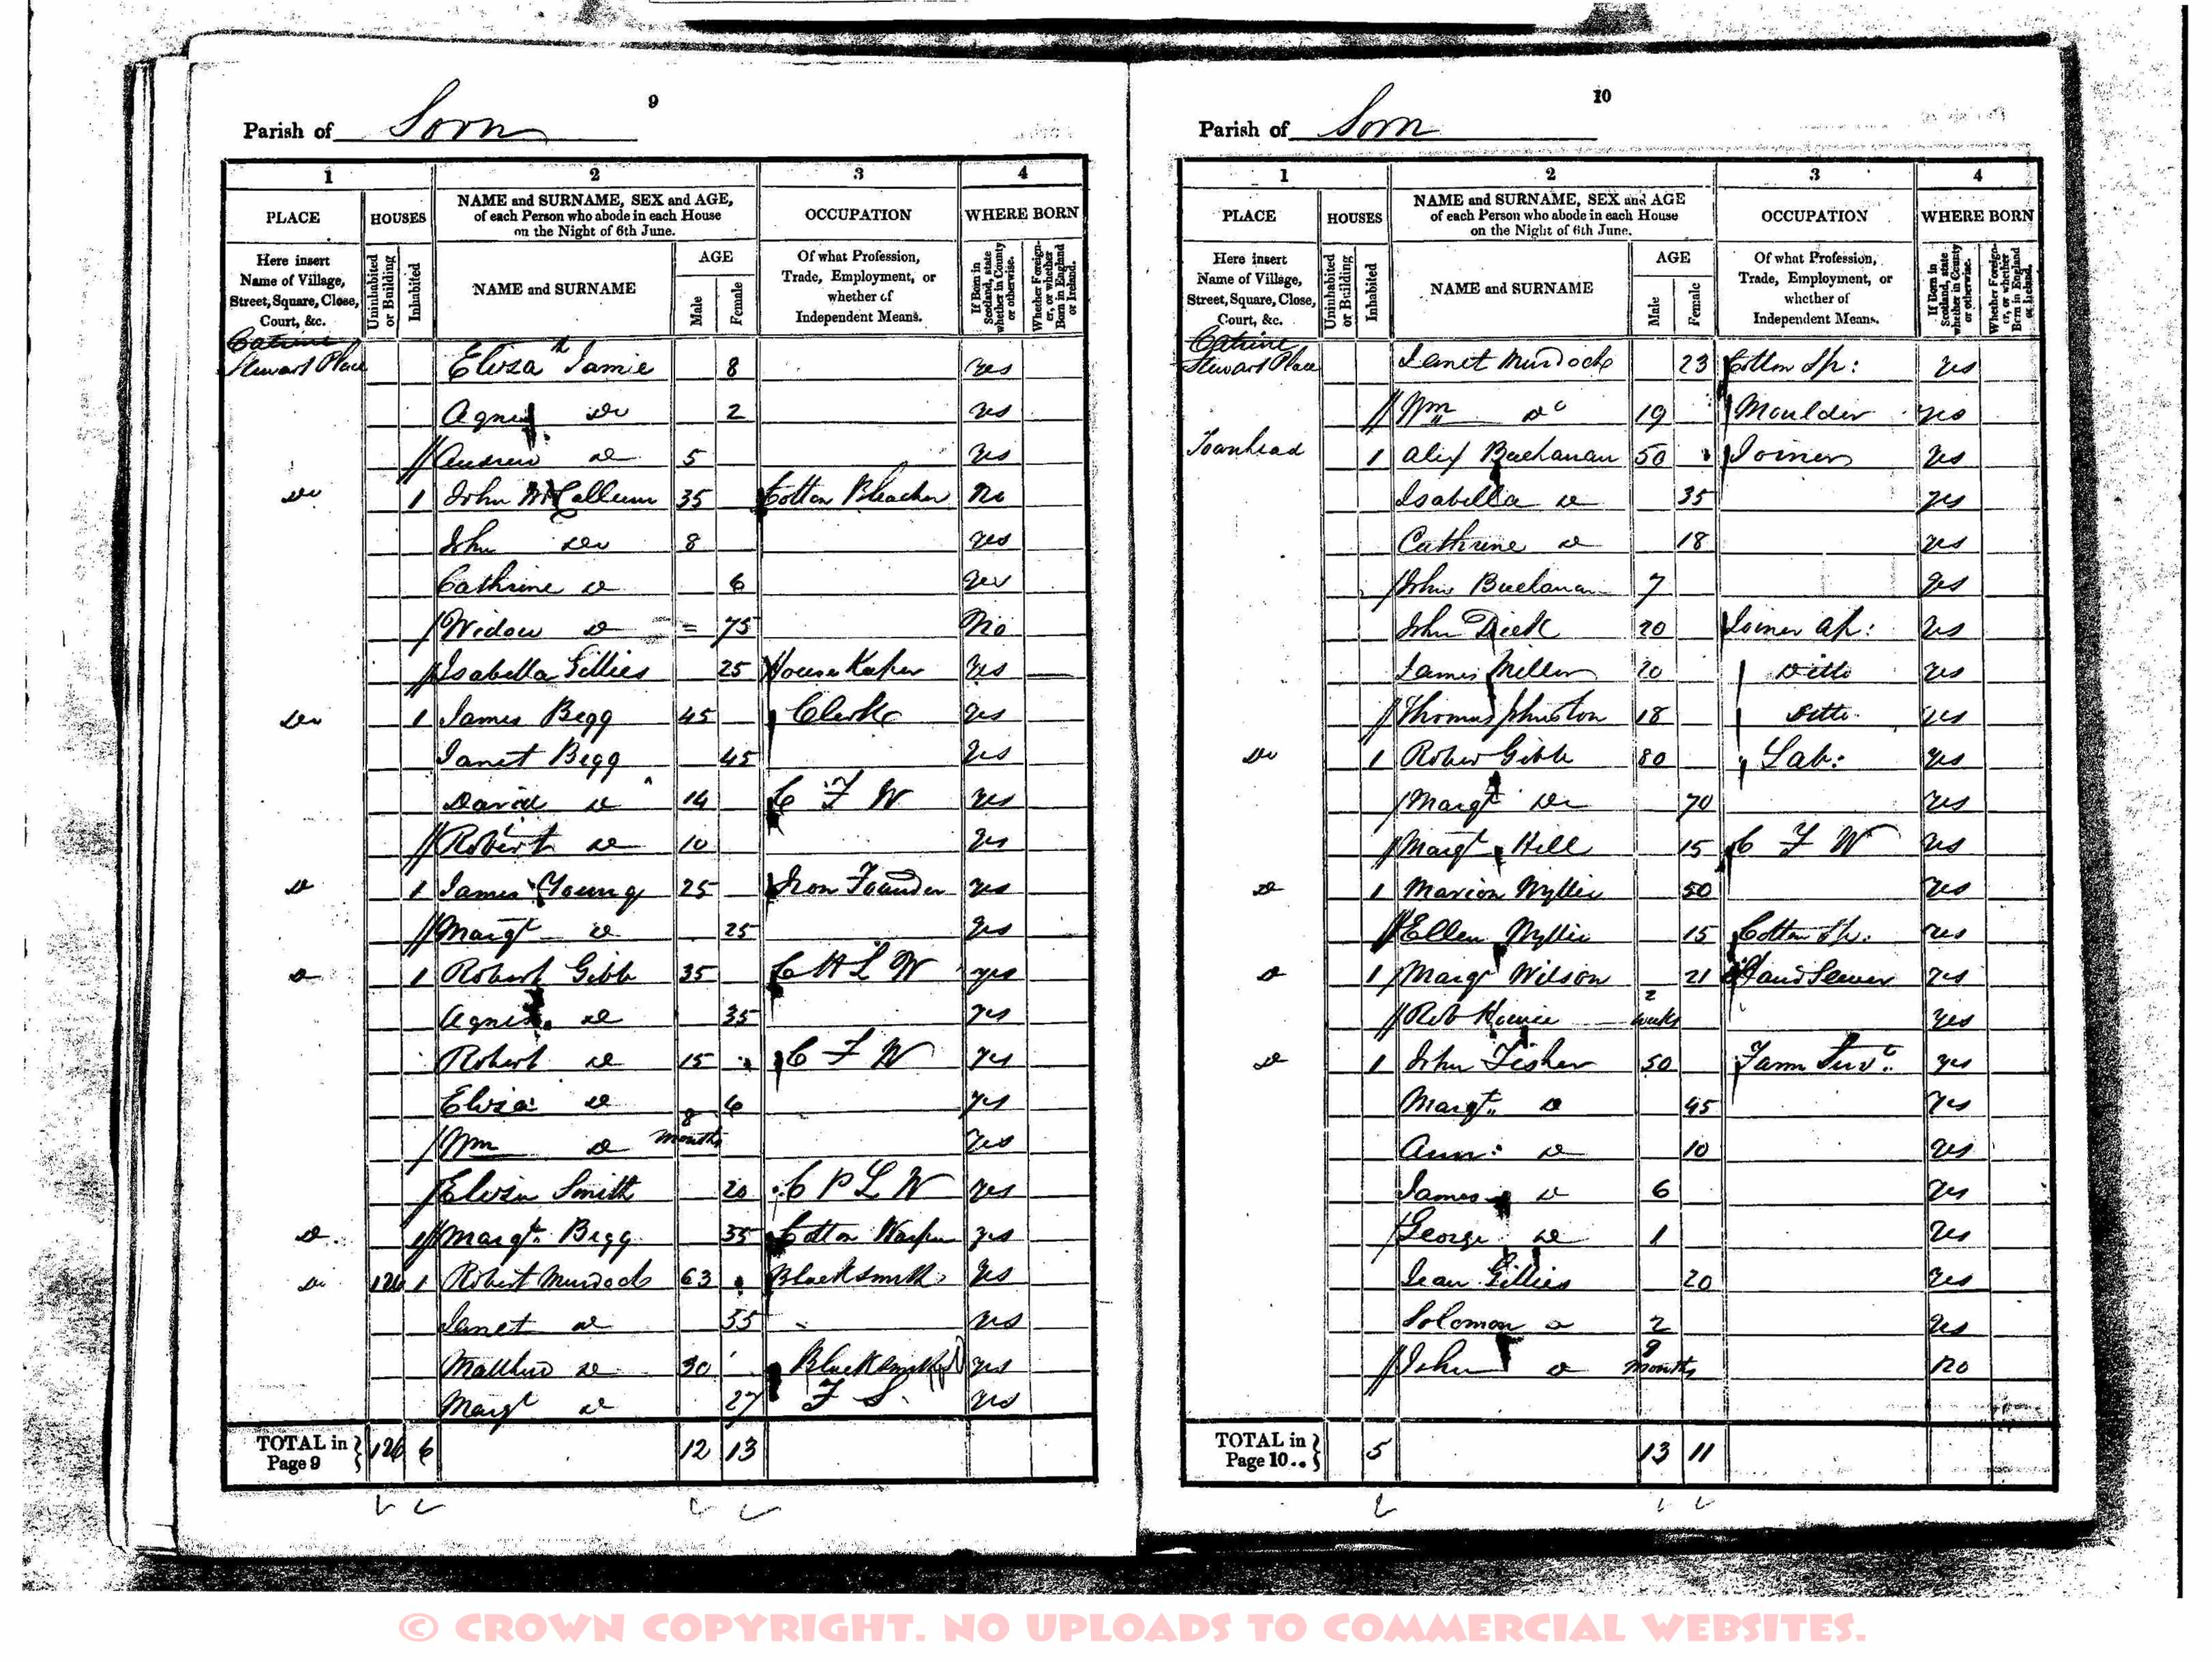 9
Parish of Sorn
1 2 3 4
PLACE HOUSES NAME and SURNAME, SEX and AGE, of each Person who abode in each House on the Night of 6th June. OCCUPATION WHERE BORN
Here insert Name of Village, Street, Square, Close, Court, &c. Uninhabited or Building Inhabited NAME and SURNAME AGE Male Female Of what Profession, Trade, Employment, or whether of Independent Means. If Born in Scotland, state whether in County or otherwise. Whether Foreigner, or whether Born in England or Ireland.
Catrine
Stewart Place Eliza Jamie 8 yes
Agnes do 2 yes
Andrew do 5 yes
do 1 John McCallum 35 Cotton Bleacher No
John do 8 yes
Cathrine do 6 yes
Widow do = 75 No
Isabella Gillies 25 House Keeper yes
do 1 James Begg 45 Clerk yes
Janet Begg 45 yes
David do 14 C F W yes
Robert do 10 yes
do 1 James Young 25 Iron Founder yes
Margt do 25 yes
do 1 Robert Gibb 35 C H L W yes
Agnes do 35 yes
Robert do 15 C F W yes
Eliza do 6 yes
Wm do 8 months yes
Eliza Smith 20 C P L W yes
do 1 Margt Begg 55 Cotton Warper yes
do 126 1 Robert Murdoch 63 Blacksmith yes
Janet do 55 yes
Matthew do 30 Blacksmith yes
Margt do 27 F S yes
TOTAL in Page 9 126 6 12 13
10
Parish of Sorn
1 2 3 4
PLACE HOUSES NAME and SURNAME, SEX and AGE of each Person who abode in each House on the Night of 6th June. OCCUPATION WHERE BORN
Here insert Name of Village, Street, Square, Close, Court, &c. Uninhabited or Building Inhabited NAME and SURNAME AGE Male Female Of what Profession, Trade, Employment, or whether of Independent Means. If Born in Scotland, state whether in County or otherwise. Whether Foreigner, or whether Born in England or Ireland.
Catrine
Stewart Place Janet Murdoch 23 Cotton Sp: yes
Wm do 19 Moulder yes
Townhead 1 Alex Buchanan 50 Joiner yes
Isabella do 35 yes
Cathrine do 18 yes
John Buchanan 7 yes
John Dick 20 Joiner ap: yes
James Miller 20 Ditto yes
Thomas Johnston 18 Ditto yes
do 1 Rober Gibb 80 Lab: yes
Margt do 70 yes
Margt Hill 15 C F W yes
do 1 Marion Wyllie 50 yes
Ellen Wyllie 15 Cotton Sp. yes
do 1 Margt Wilson 21 Hand Sewer yes
Rob Howie 2 weeks yes
do 1 John Fisher 50 Farm Servt yes
Margt do 45 yes
Ann do 10 yes
James do 6 yes
George do 1 yes
Jean Gillies 20 yes
Solomon do 2 yes
John do 9 months no
TOTAL in Page 10.. 5 13 11
© CROWN COPYRIGHT. NO UPLOADS TO COMMERCIAL WEBSITES.